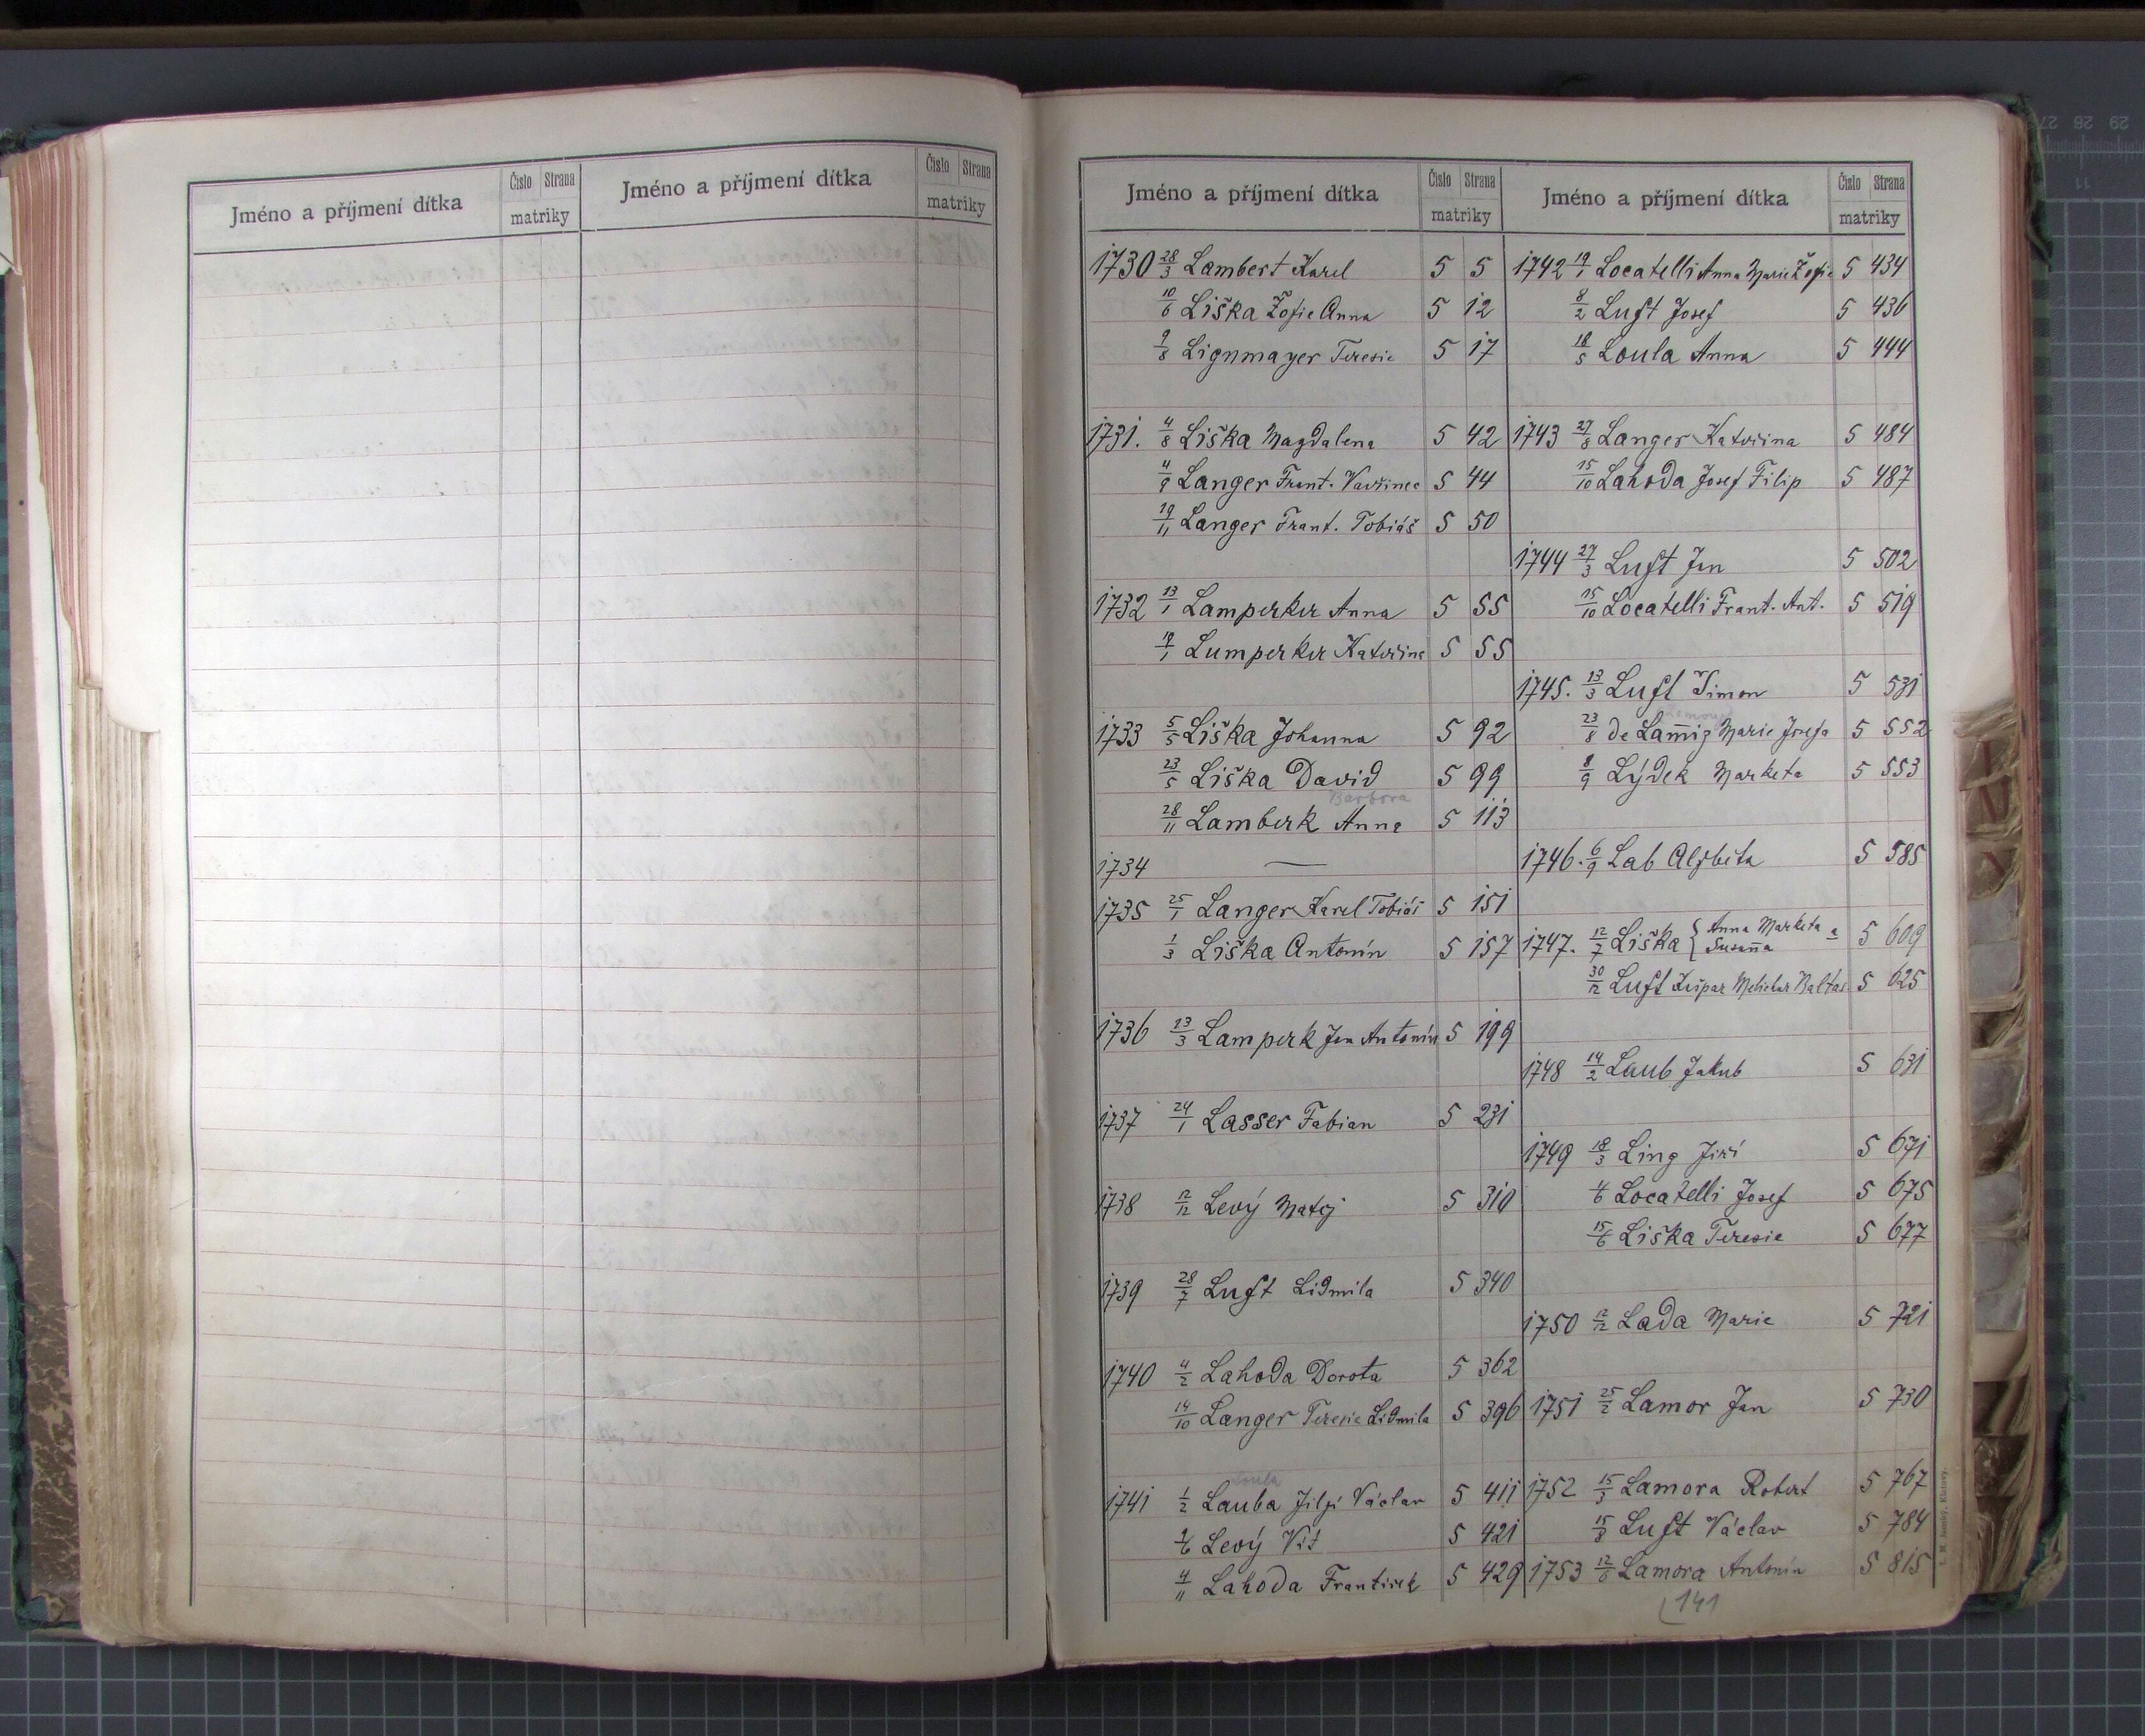 Jméno a příjmení dítka Číslo Strana matriky Jméno a příjmení dítka Číslo Strana matriky
Jméno a příjmení dítka Číslo Strana matriky Jméno a příjmení dítka Číslo Strana matriky
1730 28/3 Lambert Karel 5 5
10/6 Liška Žofie Anna 5 12
9/8 Lignmayer Teresie 5 17
1731. 4/8 Liška Magdalena 5 42
4/9 Langer Frant. Vavřinec 5 44
19/11 Langer Frant. Tobiáš 5 50
1732 13/1 Lamperker Anna 5 55
19/1 Lumperker Kateřina 5 55
1733 5/5 Liška Johanna 5 92
23/5 Liška David 5 99
Barbora
28/11 Lamberk Anna 5 113
1734 —
1735 25/1 Langer Karel Tobiáš 5 151
1/3 Liška Antonín 5 157
1736 23/3 Lamperk Jan Antonín 5 199
1737 24/1 Lasser Fabian 5 231
1738 12/12 Levý Matěj 5 310
1739 28/7 Luft Lidmila 5 340
1740 4/2 Lahoda Dorota 5 362
14/10 Langer Teresie Lidmila 5 396
Loula
1741 1/2 Lauba Jiljí Václav 5 411
9/6 Levý Vít 5 421
4/11 Lahoda František 5 429
1742 19/1 Locatelli Anna Marie Žofie 5 434
8/2 Luft Josef 5 436
18/5 Loula Anna 5 444
1743 27/8 Langer Kateřina 5 484
15/10 Lahoda Josef Filip 5 487
1744 27/3 Luft Jan 5 502
15/10 Locatelli Frant. Ant. 5 519
1745. 13/3 Luft Šimon 5 531
23/8 de Lam̄ig Marie Josefa 5 552
8/9 Lýdek Marketa 5 553
1746. 6/9 Lab Alžběta 5 585
1747. 12/7 Liška { Anna Marketa a
Susan̄a 5 609
30/12 Luft Kašpar Melichar Baltas. 5 625
1748 14/2 Laub Jakub 5 631
1749 18/3 Ling Jiří 5 671
4/6 Locatelli Josef 5 675
15/6 Liška Teresie 5 677
1750 12/12 Lada Marie 5 721
1751 25/2 Lamor Jan 5 730
1752 15/3 Lamora Robert 5 767
15/8 Luft Václav 5 784
1753 12/6 Lamora Antonín 5 815
141